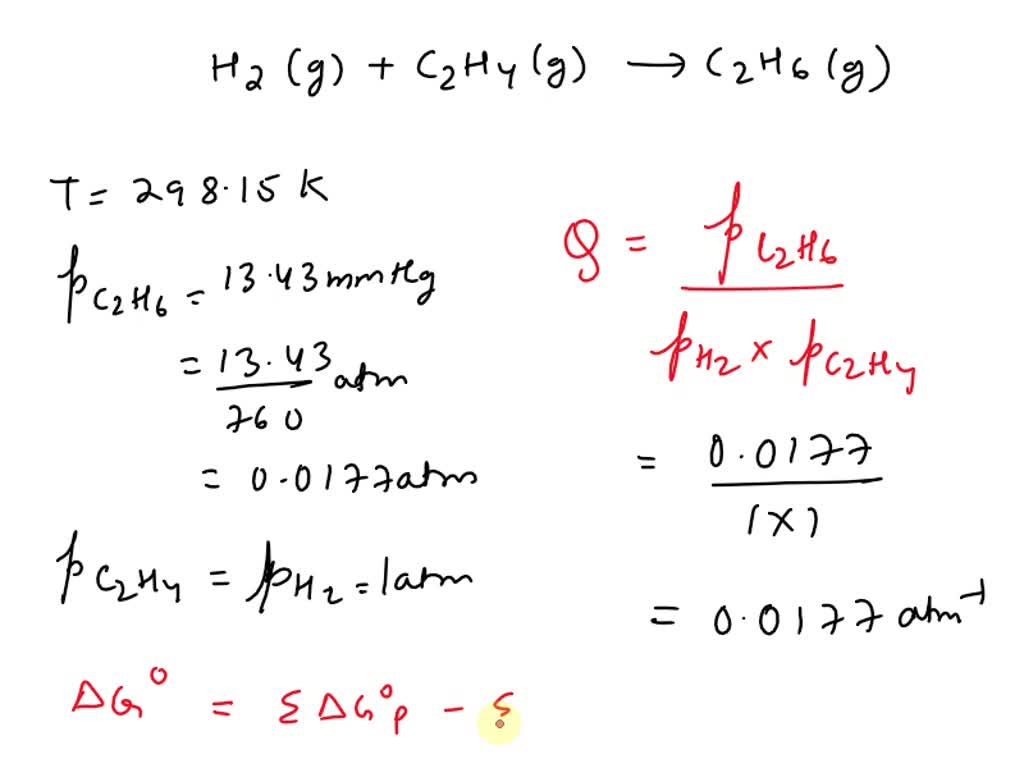 H2 (g) + C2H4 (g) → C2H6 (g)
T = 298.15 K
pC2H6 = 13.43 mmHg
= 13.43 atm
760
= 0.0177 atm
pC2H4 = pH2 = 1 atm
Q = pC2H6
pH2 × pC2H4
= 0.0177
1 × 1
= 0.0177 atm⁻¹
ΔG° = Σ ΔG°p - Σ